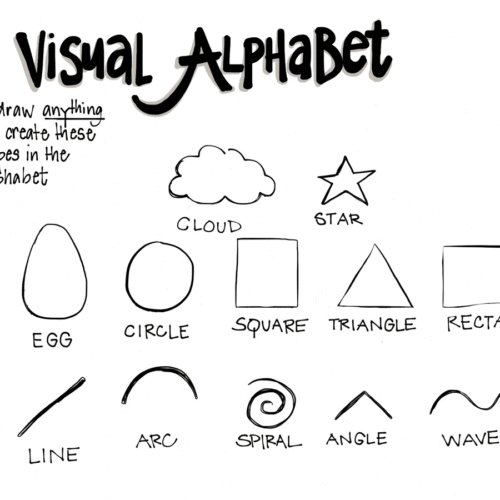 VISUAL ALPHABET
draw anything
create these
in the
CLOUD STAR
EGG CIRCLE SQUARE TRIANGLE RECTA
LINE ARC SPIRAL ANGLE WAVE